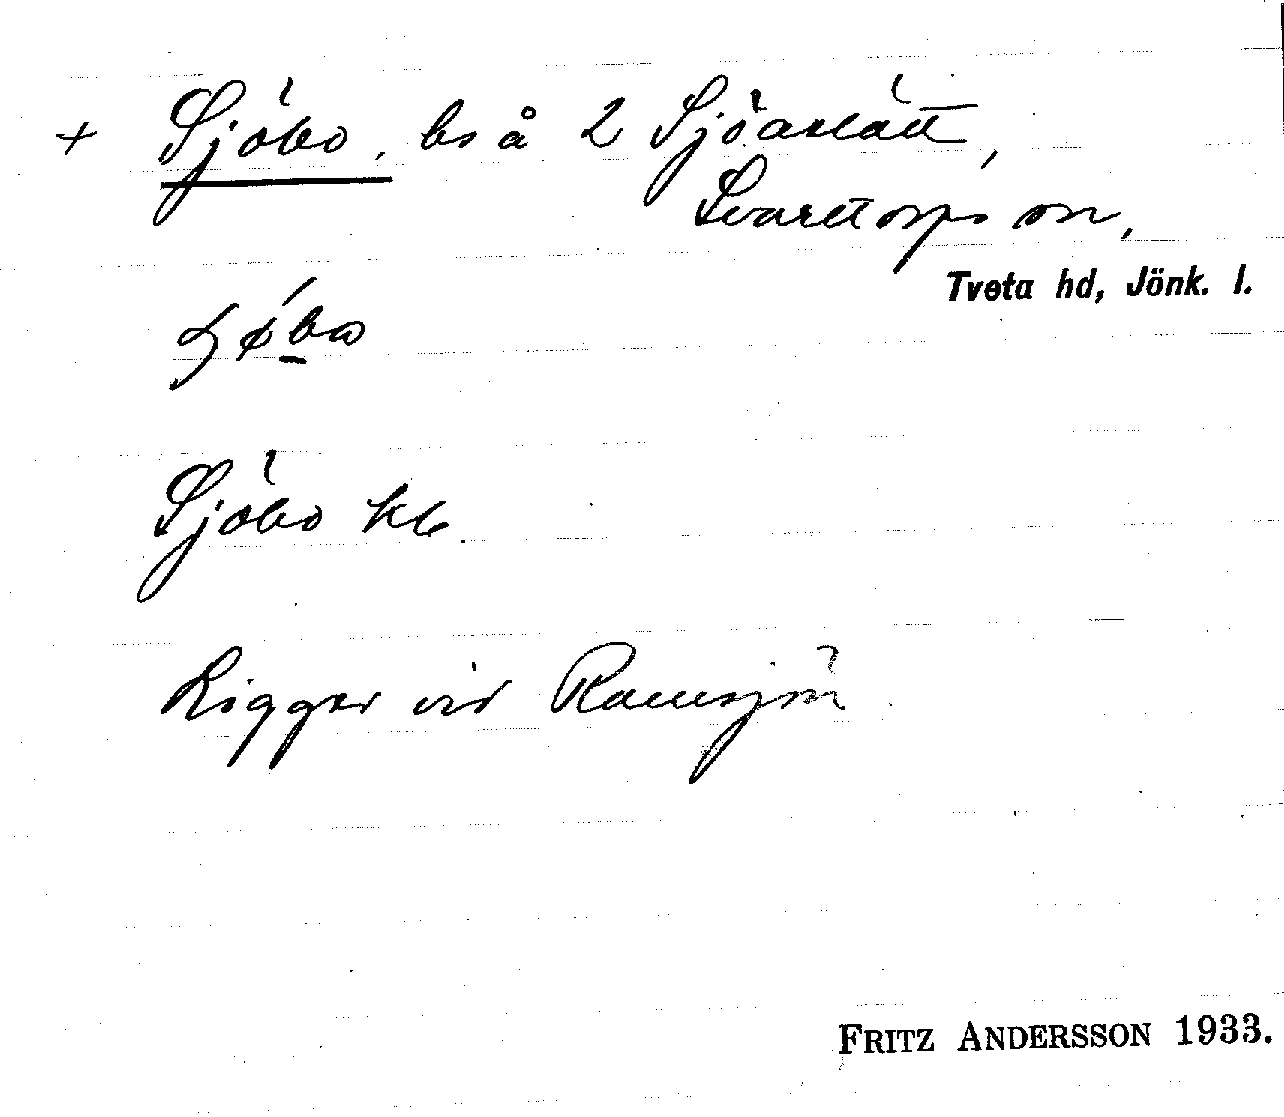 + Sjöbo, bs å 2 Sjöaslätt,
Svarttorps sn,
Tveta hd, Jönk. l.
Sjöbo kb.
Ligger vid Ramsjön
FRITZ ANDERSSON 1933.